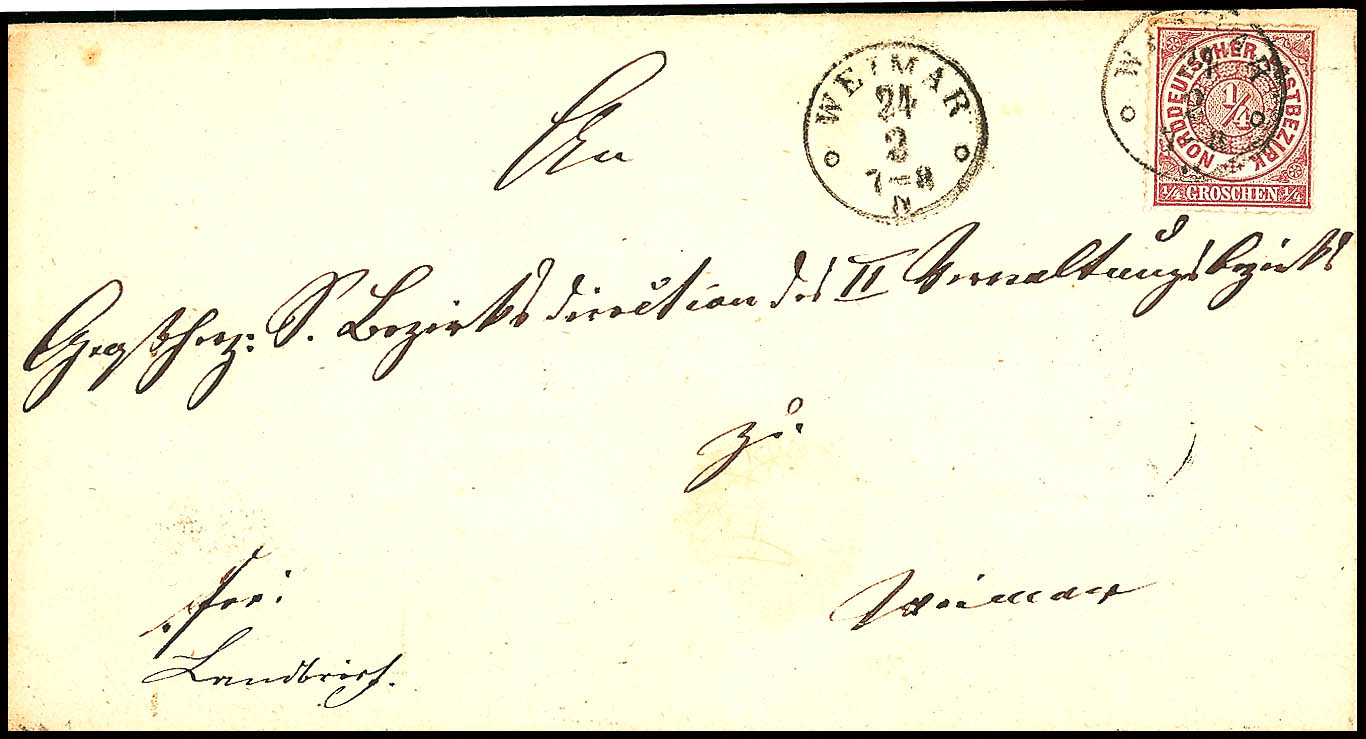 An
WEIMAR
24
2
7-8
N
NORDDEUTSCHER POSTBEZIRK
1/4
1/4 GROSCHEN 1/4
Großherz: S. Bezirksdirection des II Verwaltungsbezirks
zu
Weimar
frei
Landbrief.